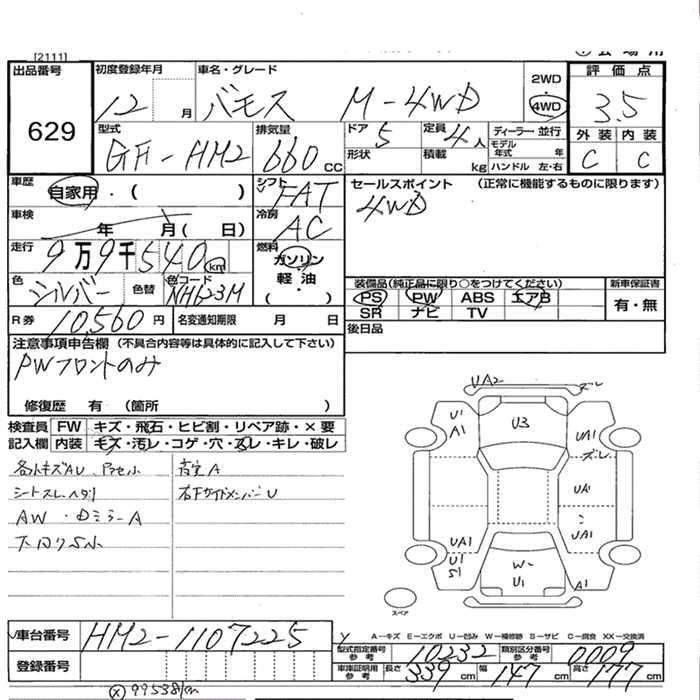 [2111]
出品番号 629
初度登録年月 12 月
車名・グレード バモス M-4WD
2WD
4WD
評価点 3.5
外装 内装
C C
型式 GF-HM2
排気量 660 cc
ドア 5
定員 4人
形状
積載 kg
ディーラー・並行
モデル年式 年
ハンドル 左・右
車歴 自家用・( )
シフト FAT
セールスポイント (正常に機能するものに限ります)
4WD
車検 年 月( 日)
冷房 AC
走行 9万9千540km
燃料 ガソリン
軽油
( ・ )
色 シルバー 色替
色コード NH623M
装備品(純正品に限り○をつけてください)
PS PW ABS エアB
SR ナビ TV
新車保証書
有・無
R券 10,560円
名変通知期限 月 日
後日品
注意事項申告欄 (不具合内容等は具体的に記入して下さい)
PWフロントのみ
修復歴 有 (箇所 )
検査員記入欄
FW キズ・飛石・ヒビ割・リペア跡・×要
内装 キズ・汚レ・コゲ・穴・スレ・キレ・破レ
シートスレ、ヘタリ
AW・Dミラー A
右下サイドメンバーU
UA2
ズレ
U1
A1
U3
ズレ
UA1
UA1
UA1
U1
S1
W
U1
A1
スペア
A-キズ E-エクボ U-凹み W-補修跡 S-サビ C-腐食 XX-交換済
車台番号 HM2-1107225
登録番号
型式指定番号 参考 10232
類別区分番号 参考 0009
車庫証明用 参考 長さ 339 cm 幅 147 cm 高さ 177 cm
X 99538km